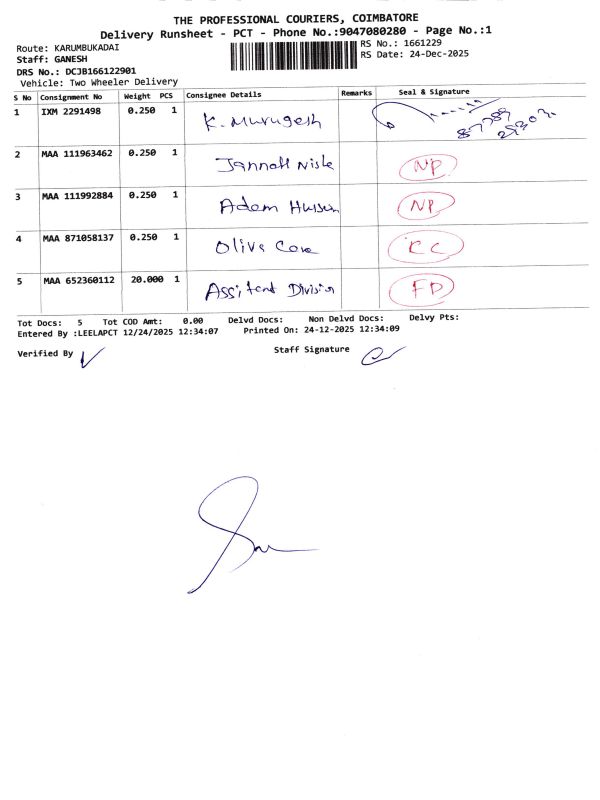 THE PROFESSIONAL COURIERS, COIMBATORE
Delivery Runsheet - PCT - Phone No.:9047080280 - Page No.:1
Route: KARUMBUKADAI
RS No.: 1661229
Staff: GANESH
RS Date: 24-Dec-2025
DRS No.: DCJB166122901
Vehicle: Two Wheeler Delivery
S No Consignment No Weight PCS Consignee Details Remarks Seal & Signature
1 IXM 2291498 0.250 1 K. Murugesh
2 MAA 111963462 0.250 1 Jannath NP
3 MAA 111992884 0.250 1 Adam NP
4 MAA 871058137 0.250 1 Olive RC
5 MAA 652360112 20.000 1 Division FD
Tot Docs: 5 Tot COD Amt: 0.00 Delvd Docs: Non Delvd Docs: Delvy Pts:
Entered By :LEELAPCT 12/24/2025 12:34:07 Printed On: 24-12-2025 12:34:09
Verified By Staff Signature